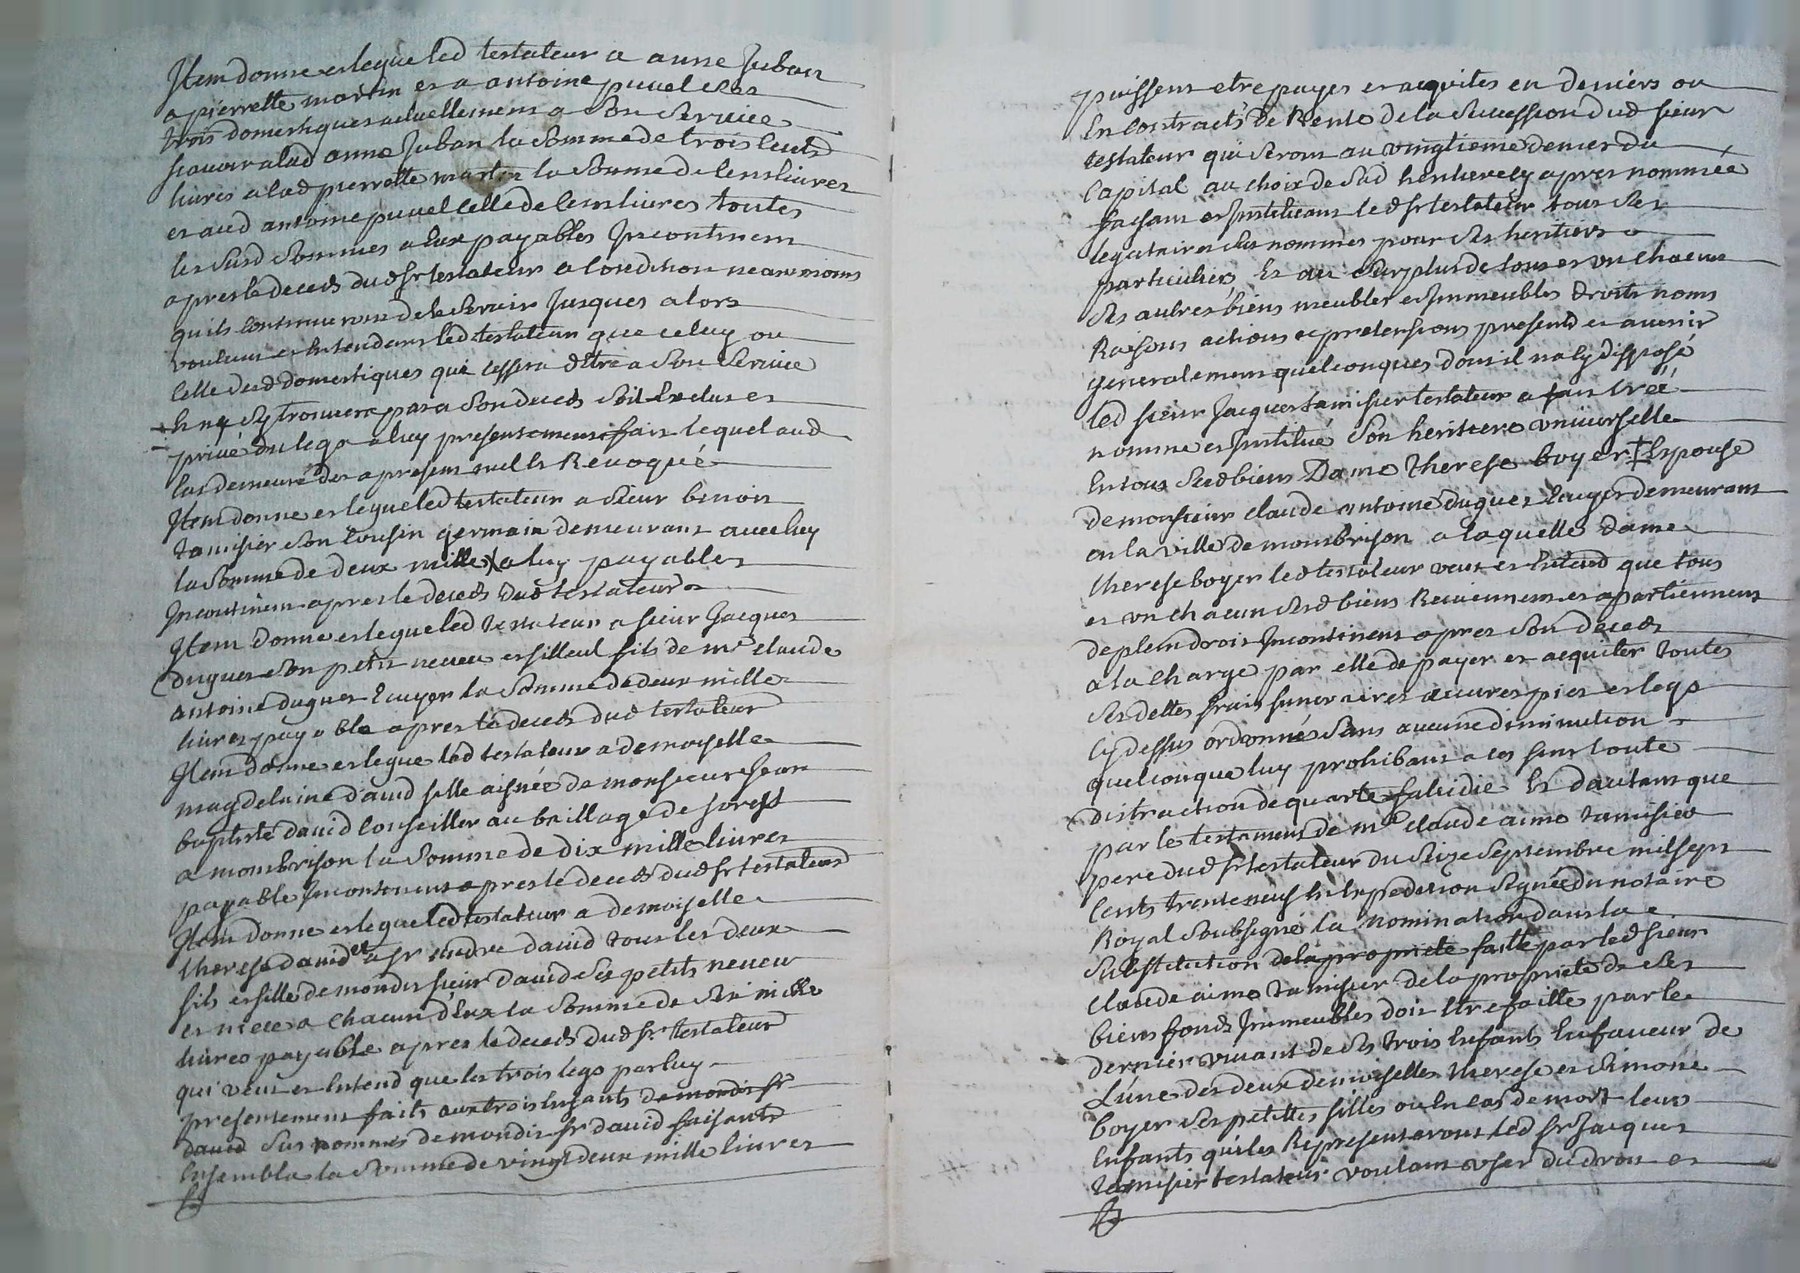 Item donne et legue led testateur a anne Juban
a pierrette martin et a antoine puvel ses
trois domestiques actuellement a Son Service
scavoir a lad anne Juban la Somme de trois Cents
livres a lad pierrette martin la Somme de Cent livres
et aud antoine puvel celle de Cent livres toutes
les susd Sommes a Eux payables Incontinent
apres le deceds dud sr testateur a Condition neanmoins
quils Continueront de le Servir Jusques alors
voulant et Entendant led testateur que celuy ou
Celle desd domestiques qui cessera detre a Son Service
Et ny Sy trouvera pas a Son deceds Soit Exclus et
privé du legs a luy presentement fait lequel aud
Cas demeure des a present nul Et Revoqué
Item donne et legue led testateur a Sieur benoit
tamisier Son Cousin germain demeurant avec luy
la Somme de deux mille a luy payable
Incontinent apres le deceds dud testateur
Item donne et legue led testateur a sieur Jacques
duguet Son petit neveu et filleul fils de mr claude
antoine duguet Ecuyer la Somme de deux mille
livres payable apres le deceds dud testateur
Item donne et legue led testateur a demoiselle
magdelaine david fille aisnée de monsieur Jean
baptiste david Conseiller au baillage de forest
a mombrison la Somme de dix mille livres
payable Incontinent apres le deceds dud sr testateur
Item donne et legue led testateur a demoiselle
therese david et a sr andre david tous les deux
fils et fille de mondit sieur david Ses petits neveu
et niece a chacun d'Eux la Somme de Six mille
livres payable apres le deceds dud sr testateur
qui veut et Entend que les trois legs par luy
presentement faits aux trois Enfants de mondit sr
david Sus nommés de mondit sr david faisants
Ensemble la Somme de vingt deux mille livres
puissent etre payes et acquites en deniers ou
En Contracts de Rente de la Succession dud sieur
testateur qui Seront au vingtieme denier du
Capital au choix de Sad heritiere cy apres nommée
faisant et Instituant led sr testateur tous Ses
legataires Sus nommés pour Ses heritiers
particuliers Et au Surplus de tous et un chacun
Ses autres biens meubles et Immeubles droits noms
Raisons actions et pretensions presents et avenir
generalement quelconques dont il na Cy disposé
led sieur Jacques tamisier testateur a fait Créé
nommé et Institué Son heritiere universelle
En tous Sesd biens Dame therese boyer ‡ Epouse
de monsieur claude antoine duguet Ecuyer demeurant
en la ville de mombrison a laquelle dame
therese boyer led testateur veut et Entend que tous
et un chacun Sesd biens Reviennent et apartiennent
de plein droit Incontinent apres Son deceds
a la charge par elle de payer et acquiter toutes
Ses dettes frais funeraires œuvres pies et legs
Cy dessus ordonnés Sans aucune diminution
quelconque luy prohibant a ces fins toute
distraction de quarte falcidie Et dautant que
par le testament de mre claude aimé tamisier
pere dud sr testateur du Seize Septembre mil sept
Cents trente neuf Et Expedition Signée du notaire
Royal Soubsigné la nomination dans la
Substitution de la proprieté faitte par led sieur
claude aimé tamisier de la proprieté de Ses
biens fonds Immeubles doit Etre faitte par le
dernier vivant de Ses trois Enfants En faveur de
L'une des deux demoiselles therese et Simone
boyer Ses petittes filles ou En Cas de mort leurs
Enfants qui les Representeront led sr Jacques
tamisier testateur voulant user du droit et